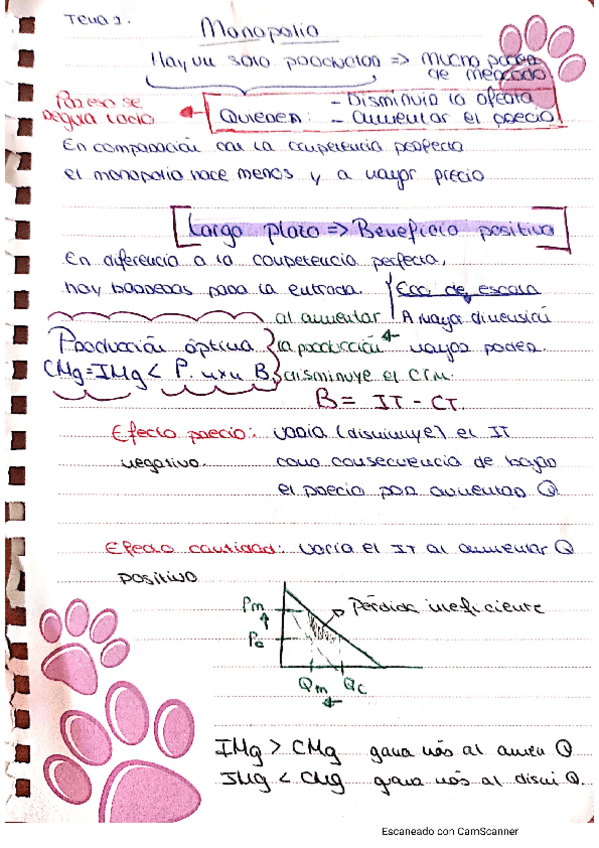 Tema 2.
Monopolio
Hay un solo productor => mucho poder de mercado
Por eso se regula tanto
Quieren: - Disminuir la oferta
- aumentar el precio
En comparación con la competencia perfecta
el monopolio hace menos y a mayor precio
Largo plazo => Beneficio positivo
En diferencia a la competencia perfecta,
hay barreras para la entrada.
Eco. de escala
A mayor dimensión
mayor poder.
al aumentar
la producción
disminuye el CTM.
Producción óptima
CMg = IMg < P. max B.
B = IT - CT.
Efecto precio: varia (disminuye) el IT
negativo.
como consecuencia de bajar
el precio por aumentar Q
Efecto cantidad: varía el IT al aumentar Q
positivo
Pm
Pc
Pérdida ineficiente
Qm
Qc
IMg > CMg gana más al aumen Q
IMg < CMg gana más al dismi Q.
Escaneado con CamScanner